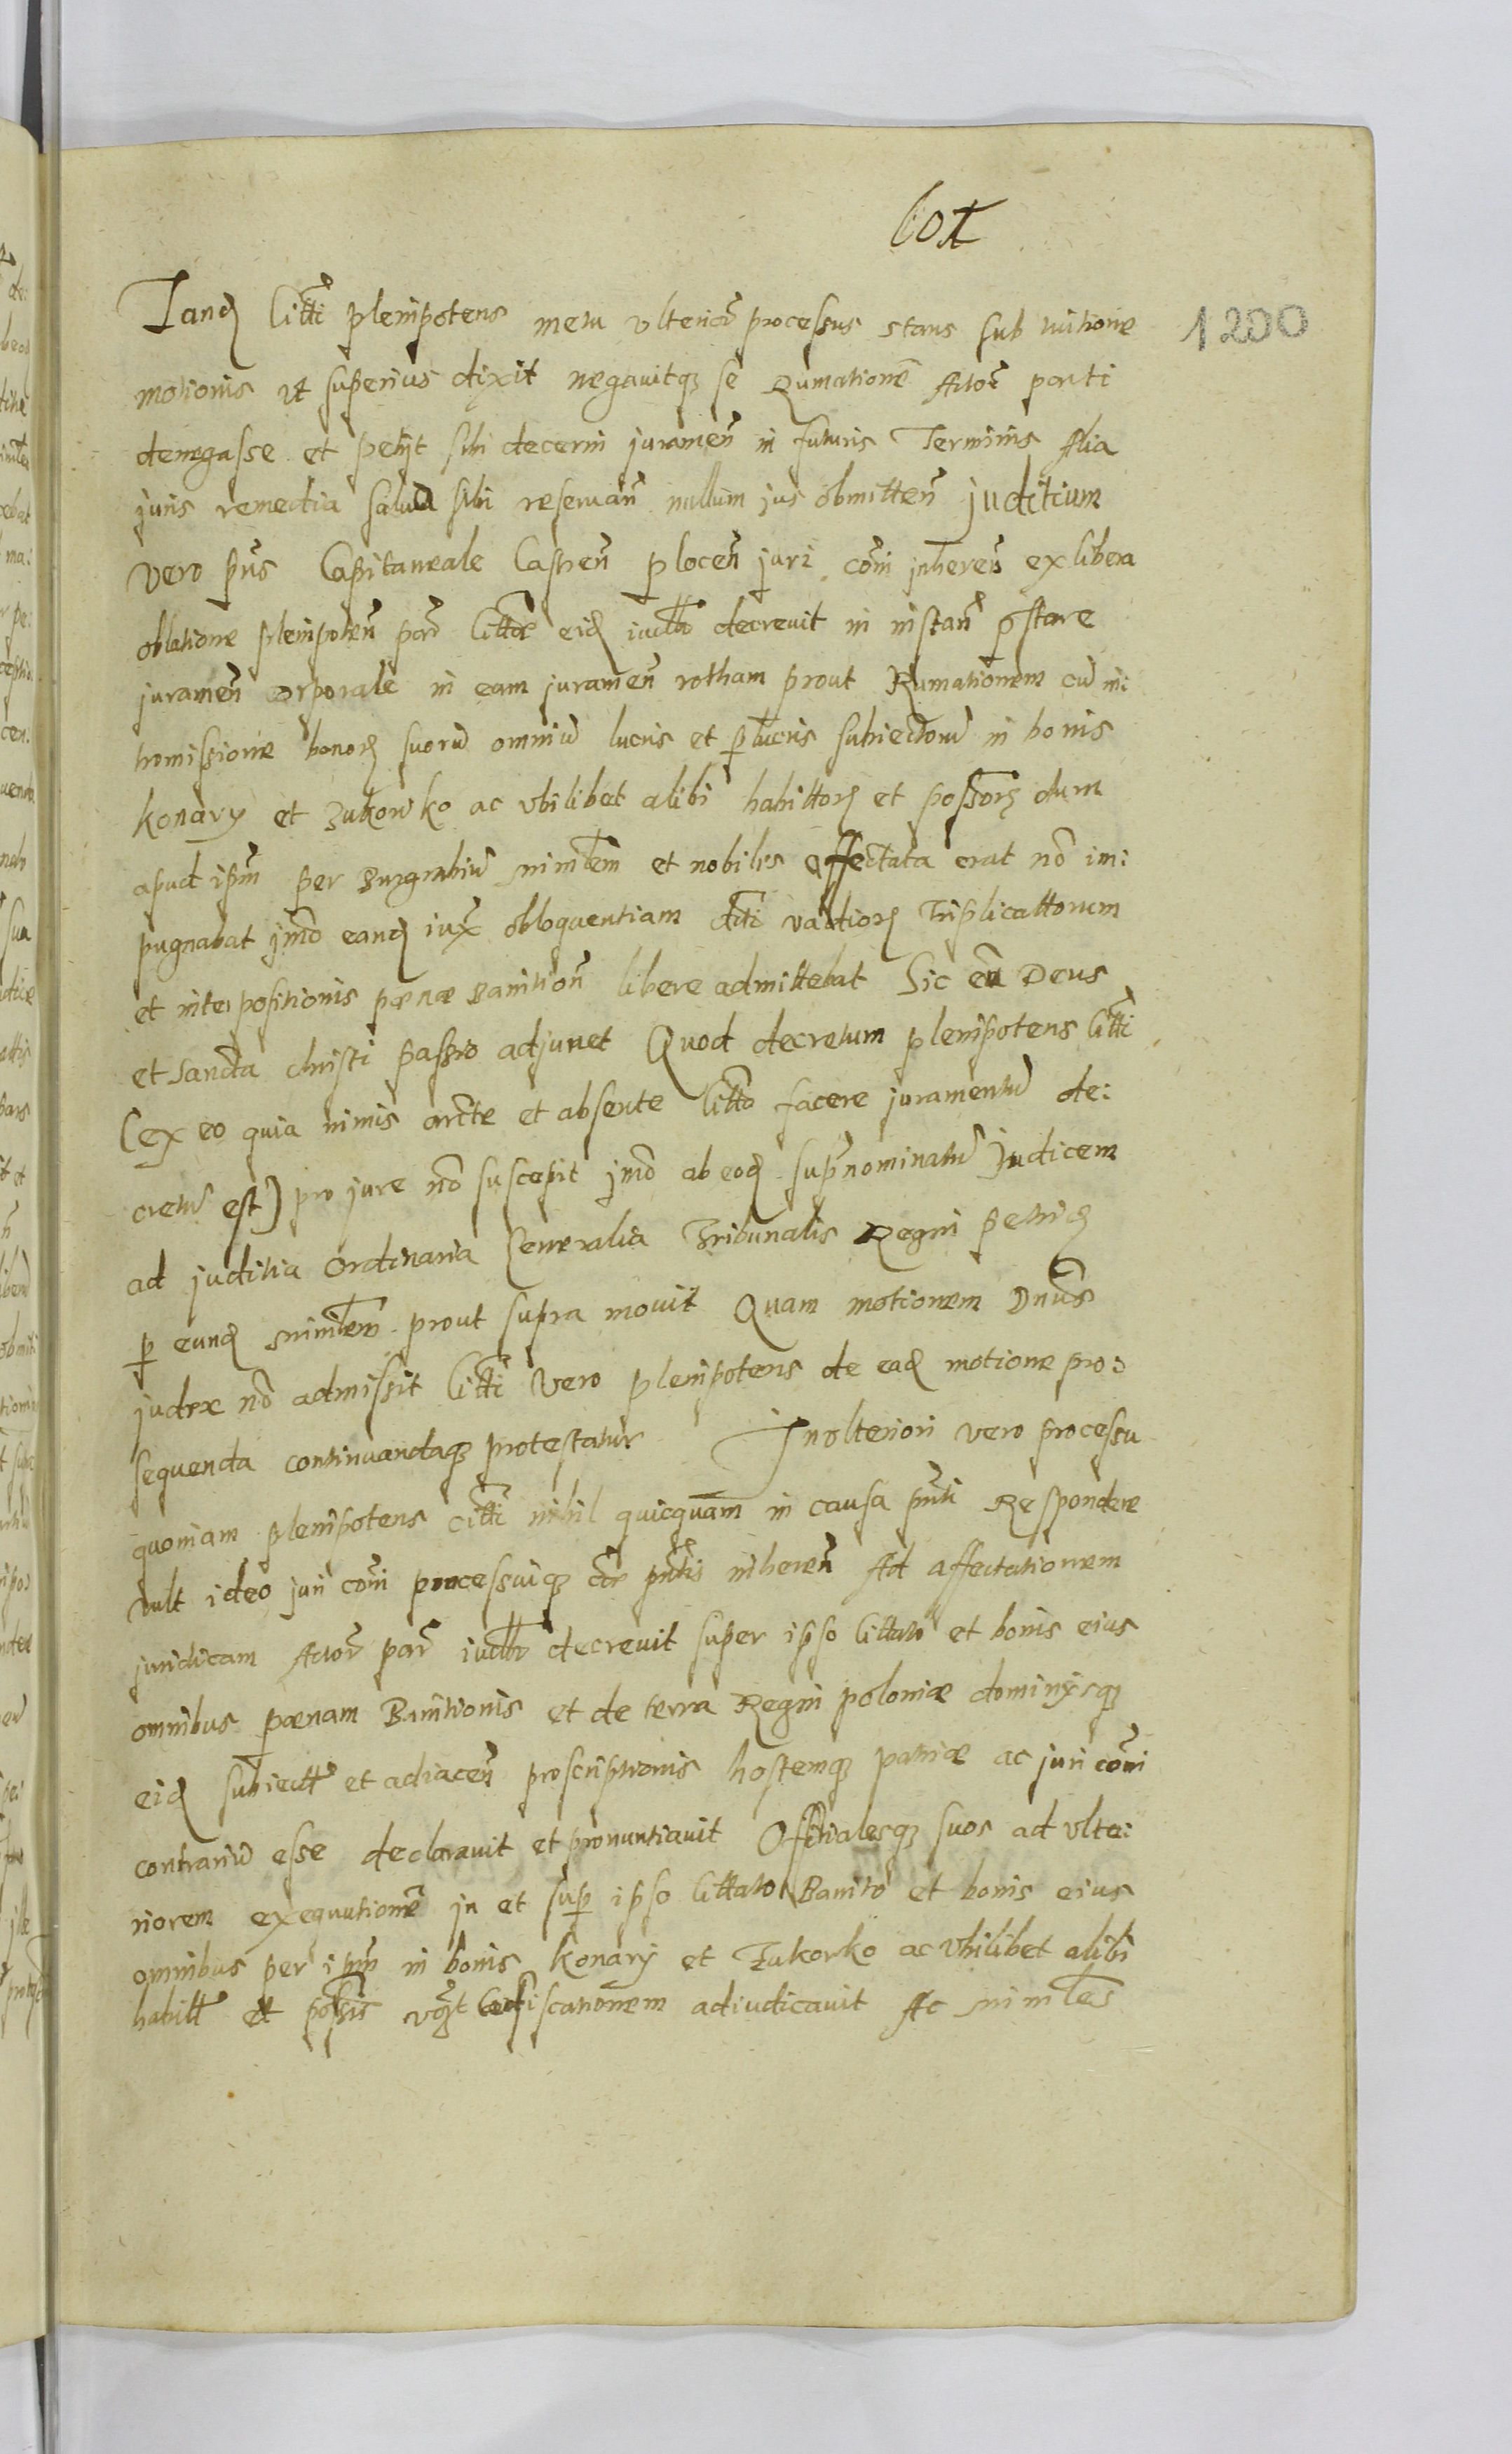 601
1200
Tand Citti plenipotens metu ulterior processus stans sub
motionis ut superius dixit negavitq se Rumatione Actor parti
denegasse et petyt sibi decerni juramen in futuris Terminis Alia
juris remedia salva sibi reservan nullum jus obmitten juditium
vero pns Capitaneale Castren plocen juri coni inheren ex libera
oblatione plenipoten par Citta eid decrevit in instan pstare
juramen corporale in eam juramen rotham prout Rumationem cu in:
tromissione bonor suoru omniu lucris et plucris subiectoru in bonis
konary et Zukowko ac ubilibet alibi habittor et possor dum
apud ipm per Burgrabiu minlem et nobiles affectata erat no im:
pugnabat imo eand iux obloquentiam dtti vadior Triplicattorum
et interpositionis pænæ Banition libere admittebat Sic en Deus
et sancta christi passio adjuvet Quod decretum plenipotens Citti
(ex eo quia nimis arcte et absente Citto facere juramentu de:
cretu est) pro jure no suscepit imo ab eod supnominatu Judicem
ad juditia Ordinaria Generalia Tribunalis Regni petrico
p eund minlem prout supra movit Quam motionem Dnus
judex no admissit Citti Vero plenipotens de ead motione pro:
sequenda continuandaq protestatur In ulteriori vero processu
quoniam plenipotens citti nihil quicquam in causa pnti Respondere
vult ideo juri coni processuiq cæ pntis inheren Ad affectationem
juridicam Actor par decrevit super ipso Cittato et bonis eius
omnibus pænam Banitionis et de terra Regni poloniæ dominysq
eid subiectt et adiacen proscriptionis hostemq patriæ ac juri coni
contrariu esse declaravit et pronuntiavit Officialesq suos ad ulte:
riorem exequutione in et sup ipso Cittato Banito et bonis eius
omnibus per ipm in bonis Konary et Zukowko ac Ubilibet alibi
habitt et possis confiscationem adiudicavit Ac minles